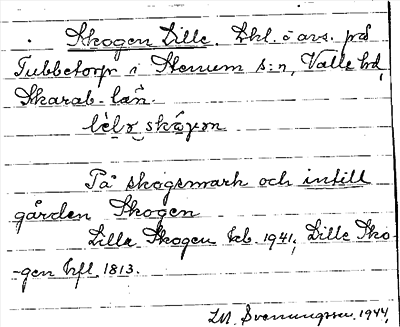 Skogen Lille. Lhl. å avs. på
Tubbetorp i Stenum s:n, Valle hd,
Skarab. län.
På skogsmark och intill
gården Skogen
Lilla Skogen kb. 1941, Lille Sko-
gen hfl. 1813.
Svenungsson. 1944.